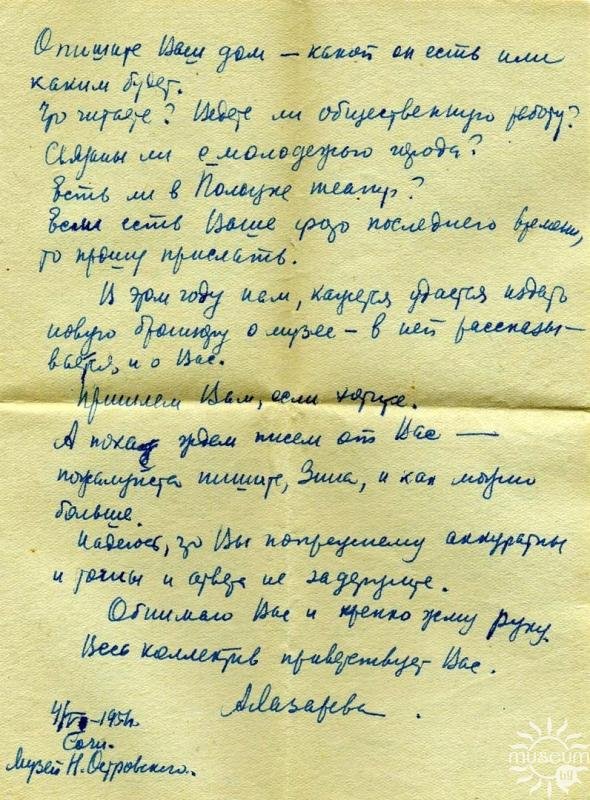 Опишите Ваш дом – какой он есть или
каким будет.
Что читаете? Ведете ли общественную работу?
Связаны ли с молодежью города?
Есть ли в Полоцке театр?
Если есть Ваше фото последнего времени,
то прошу прислать.
В этом году нам, кажется удастся издать
новую брошюру о музее – в ней рассказы-
вается, и о Вас.
Пришлем Вам, если хотите.
А пока ждем писем от Вас —
пожалуйста пишите, Зина, и как можно
больше.
Надеюсь, что Вы попрежнему аккуратны
и точны и ответа не задержите.
Обнимаю Вас и крепко жму руку.
Весь коллектив приветствует Вас.
АЛазарева.
Сочи.
Музей Н. Островского.
museum
by